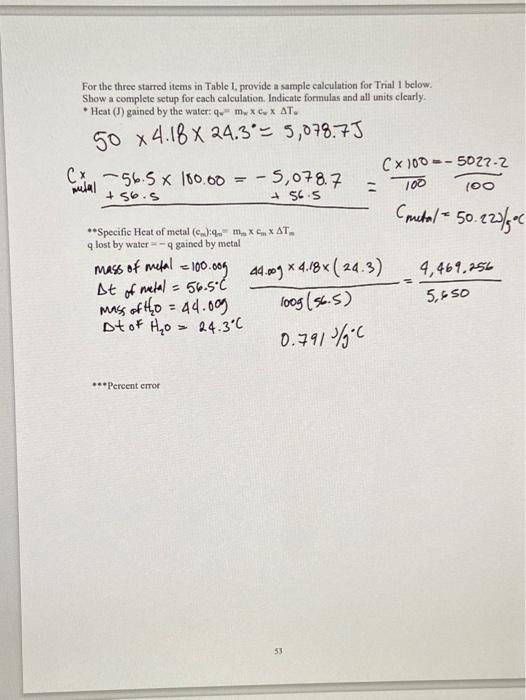 For the three starred items in Table 1, provide a sample calculation for Trial 1 below.
Show a complete setup for each calculation. Indicate formulas and all units clearly.
* Heat (J) gained by the water: qw= mw x cw x ΔTw
50 x 4.18 x 24.3° = 5,078.7J
Cx metal -56.5 x 100.00 = -5,078.7
+56.5 +56.5
= C x 100 = -5022.2
100 100
Cmetal = 50.22J/g°C
**Specific Heat of metal (cm):qm= mm x cm x ΔTm
q lost by water = - q gained by metal
mass of metal = 100.00g
Δt of metal = 56.5°C
mass of H2O = 44.00g
Δt of H2O = 24.3°C
44.00g x 4.18 x (24.3) = 4,469.256
100g (56.5) 5,650
0.791 J/g°C
***Percent error
53